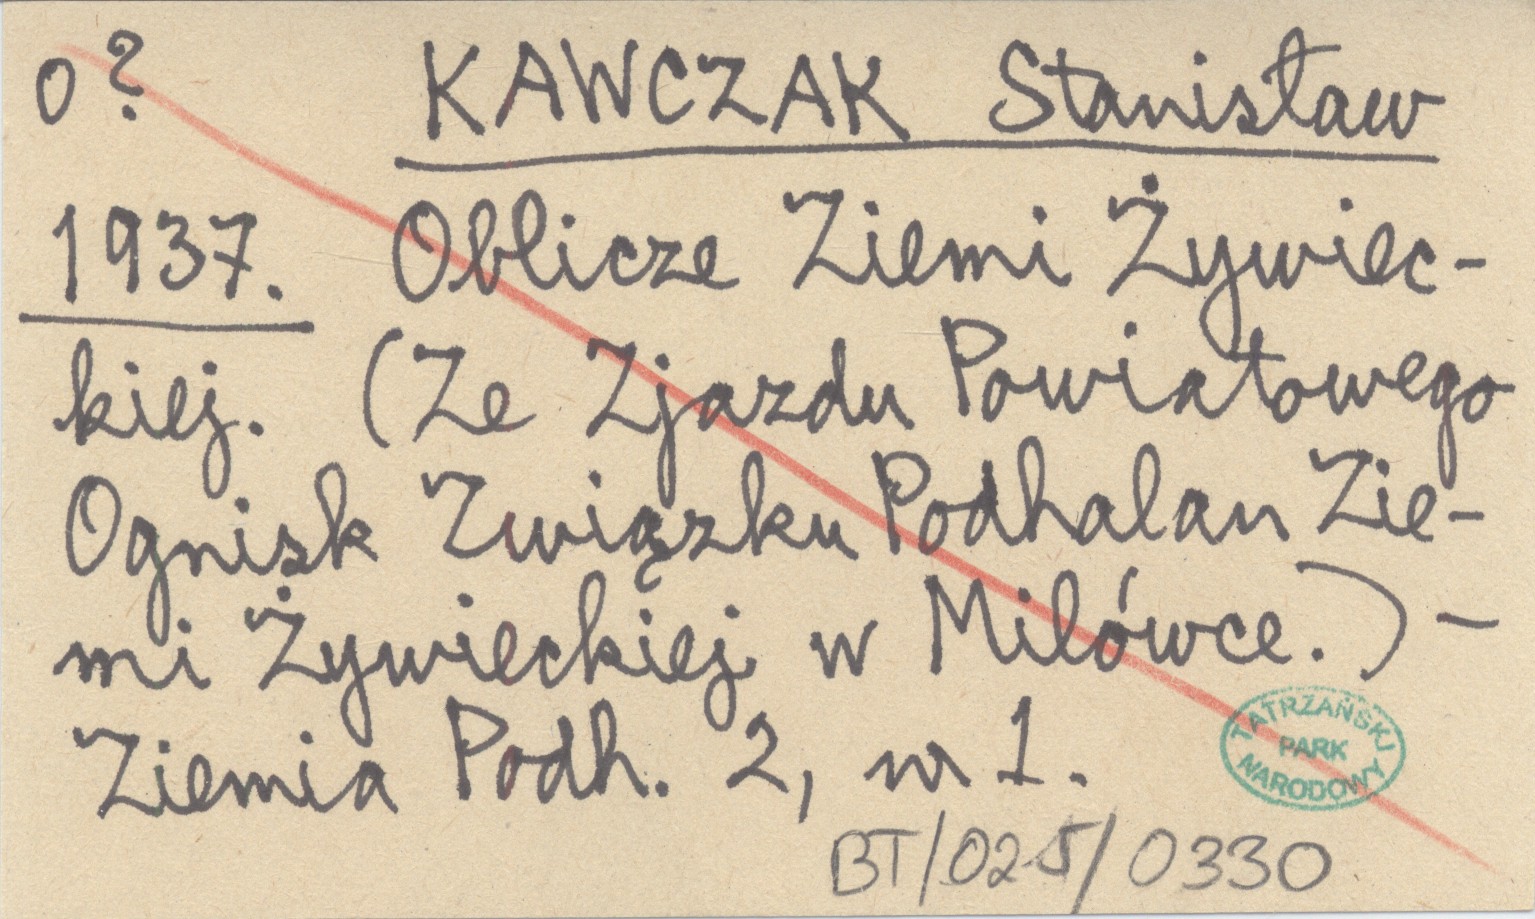 o? KAWCZAK Stanisław
1937. Oblicze Ziemi Żywiec-
kiej. (Ze Zjazdu Powiatowego
Ognisk Związku Podhalan Zie-
mi Żywieckiej w Milówce.) –
Ziemia Podh. 2, nr 1.
TATRZAŃSKI
PARK
NARODOWY
BT/025/0330